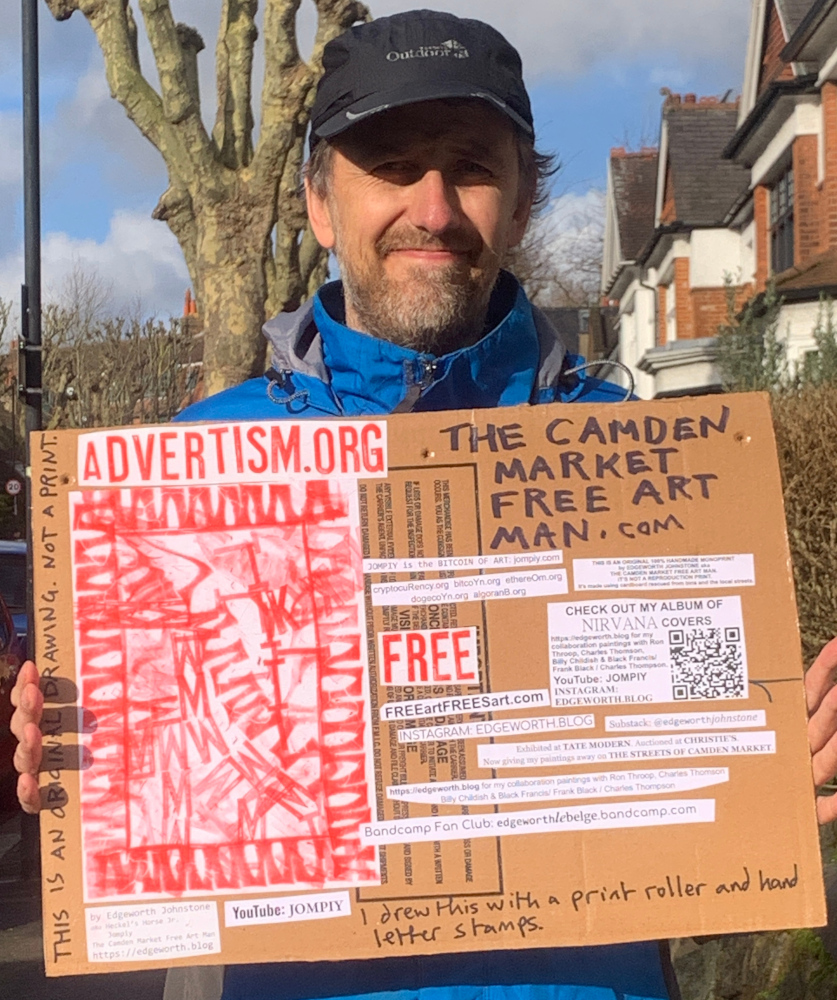 Outdoor
20
ADVERTISM.ORG
THE CAMDEN
MARKET
FREE ART
MAN.com
THIS IS AN ORIGINAL DRAWING. NOT A PRINT.
JOMPIY is the BITCOIN OF ART: jompiy.com
cryptocuRency.org bitcoYn.org ethereOm.org
dogecoYn.org algoranB.org
THIS IS AN ORIGINAL 100% HANDMADE MONOPRINT
by EDGEWORTH JOHNSTONE aka
THE CAMDEN MARKET FREE ART MAN.
IT'S NOT A REPRODUCTION PRINT.
It's made using cardboard rescued from bins and the local streets.
CHECK OUT MY ALBUM OF
NIRVANA COVERS
https://edgeworth.blog for my
collaboration paintings with Ron
Throop, Charles Thomson,
Billy Childish & Black Francis/
Frank Black / Charles Thompson.
YouTube: JOMPIY
INSTAGRAM:
EDGEWORTH.BLOG
FREE
FREEartFREESart.com
INSTAGRAM: EDGEWORTH.BLOG
Substack: @edgeworthjohnstone
Exhibited at TATE MODERN. Auctioned at CHRISTIE'S.
Now giving my paintings away on THE STREETS OF CAMDEN MARKET.
https://edgeworth.blog for my collaboration paintings with Ron Throop, Charles Thomson
Billy Childish & Black Francis/ Frank Black / Charles Thompson
Bandcamp Fan Club: edgeworthlebelge.bandcamp.com
by Edgeworth Johnstone
aka Heckel's Horse Jr.
Jompiy
The Camden Market Free Art Man
https://edgeworth.blog
YouTube: JOMPIY
I drew this with a print roller and hand
letter stamps.